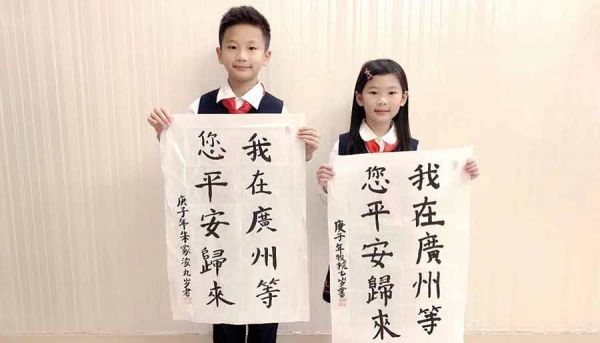 我在廣州等
您平安歸來
庚子年朱家 九岁書
我在廣州等
您平安歸來
庚子年 岁書